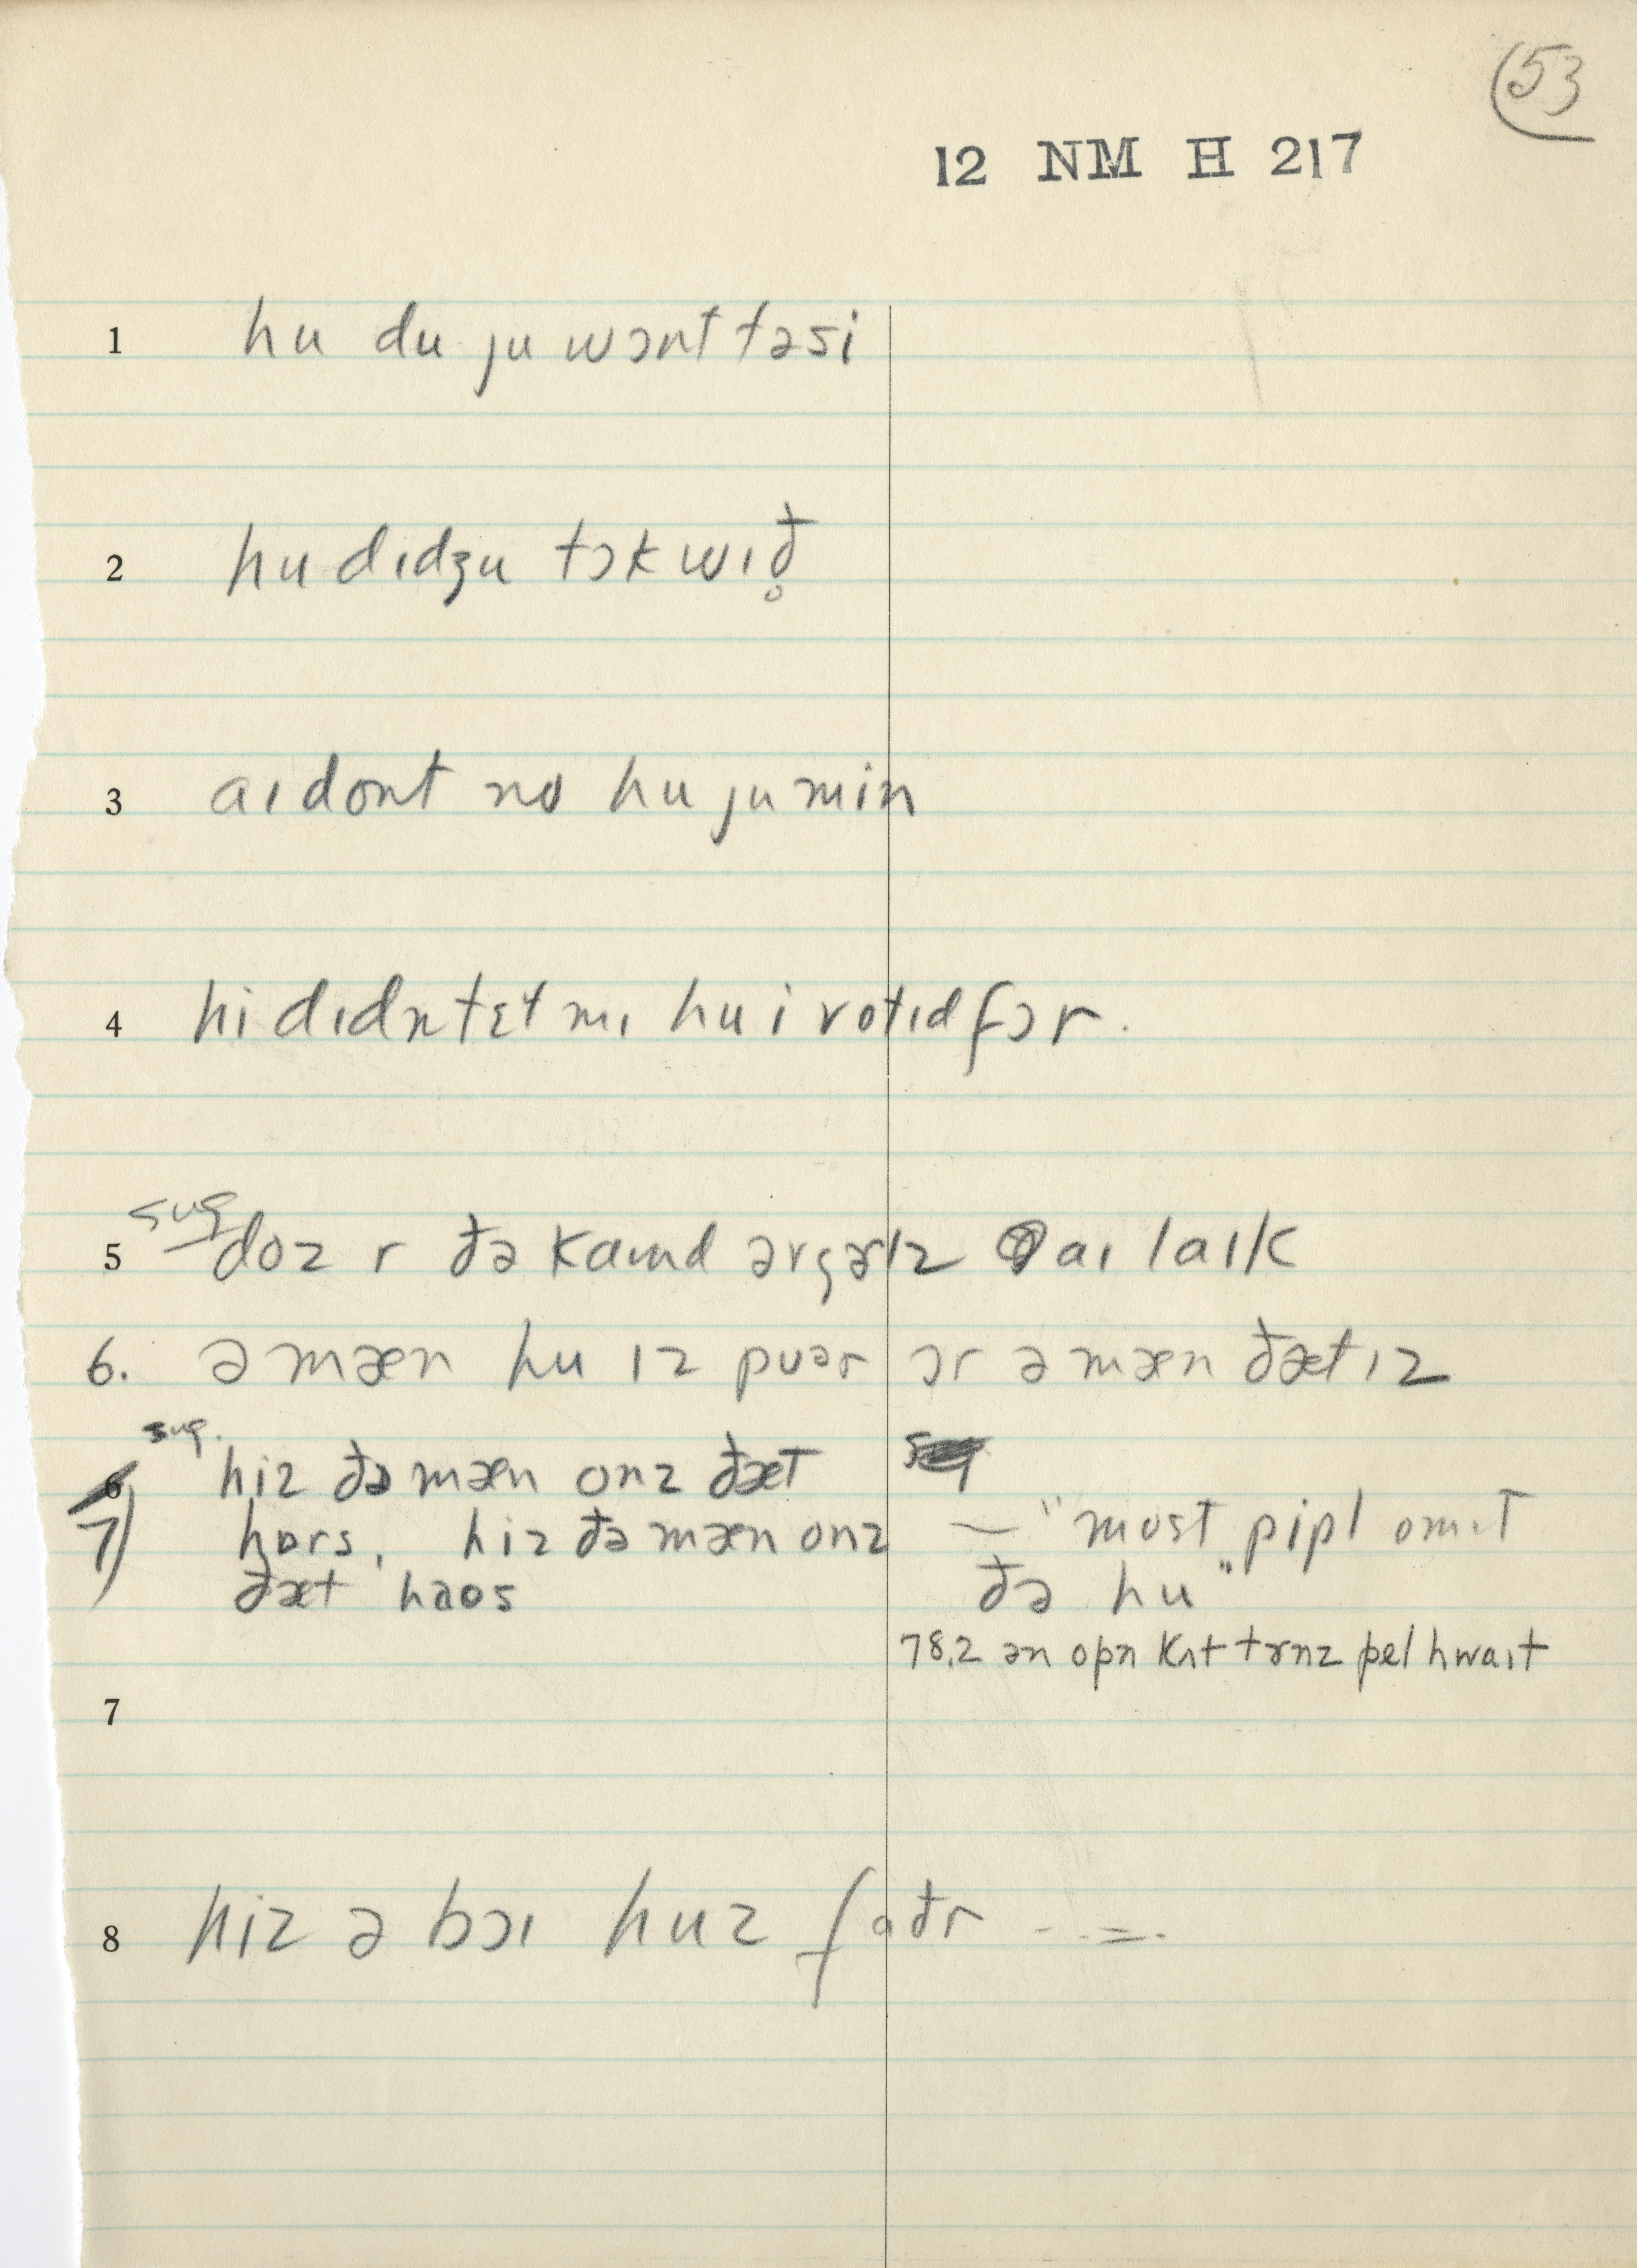 53
12 NM H 217
1 hu du ju wɔnt təsi
2 hu dɪdʒu tɔk wɪð̥
3 aɪdont no hu ju min
4 hi dɪdn tɛɫ mɪ hu i votɪd fɔr.
5 sug doz r ðə kaɪnd ərgərlz aɪ laɪk
6. ə mæn hu ɪz puər ɔr ə mæn ðæt ɪz
6 sug. hiz ðə mæn onz ðæt
7) hɒrs, hiz ðə mæn onz — "most pipl omɪt
ðæt haos ðə hu"
78.2 ən opn kʌt tɝnz pel hwaɪt
7
8 hiz ə bɔɪ huz faðr - - = -